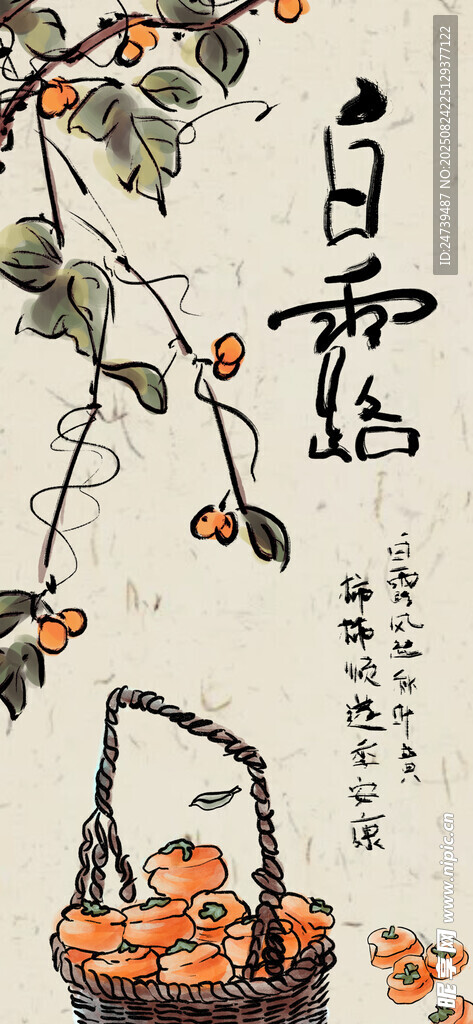 白露
白露风起秋叶黄
柿柿顺遂至安康
ID:24739487 NO:20250824225129377122
昵享网 www.nipic.cn